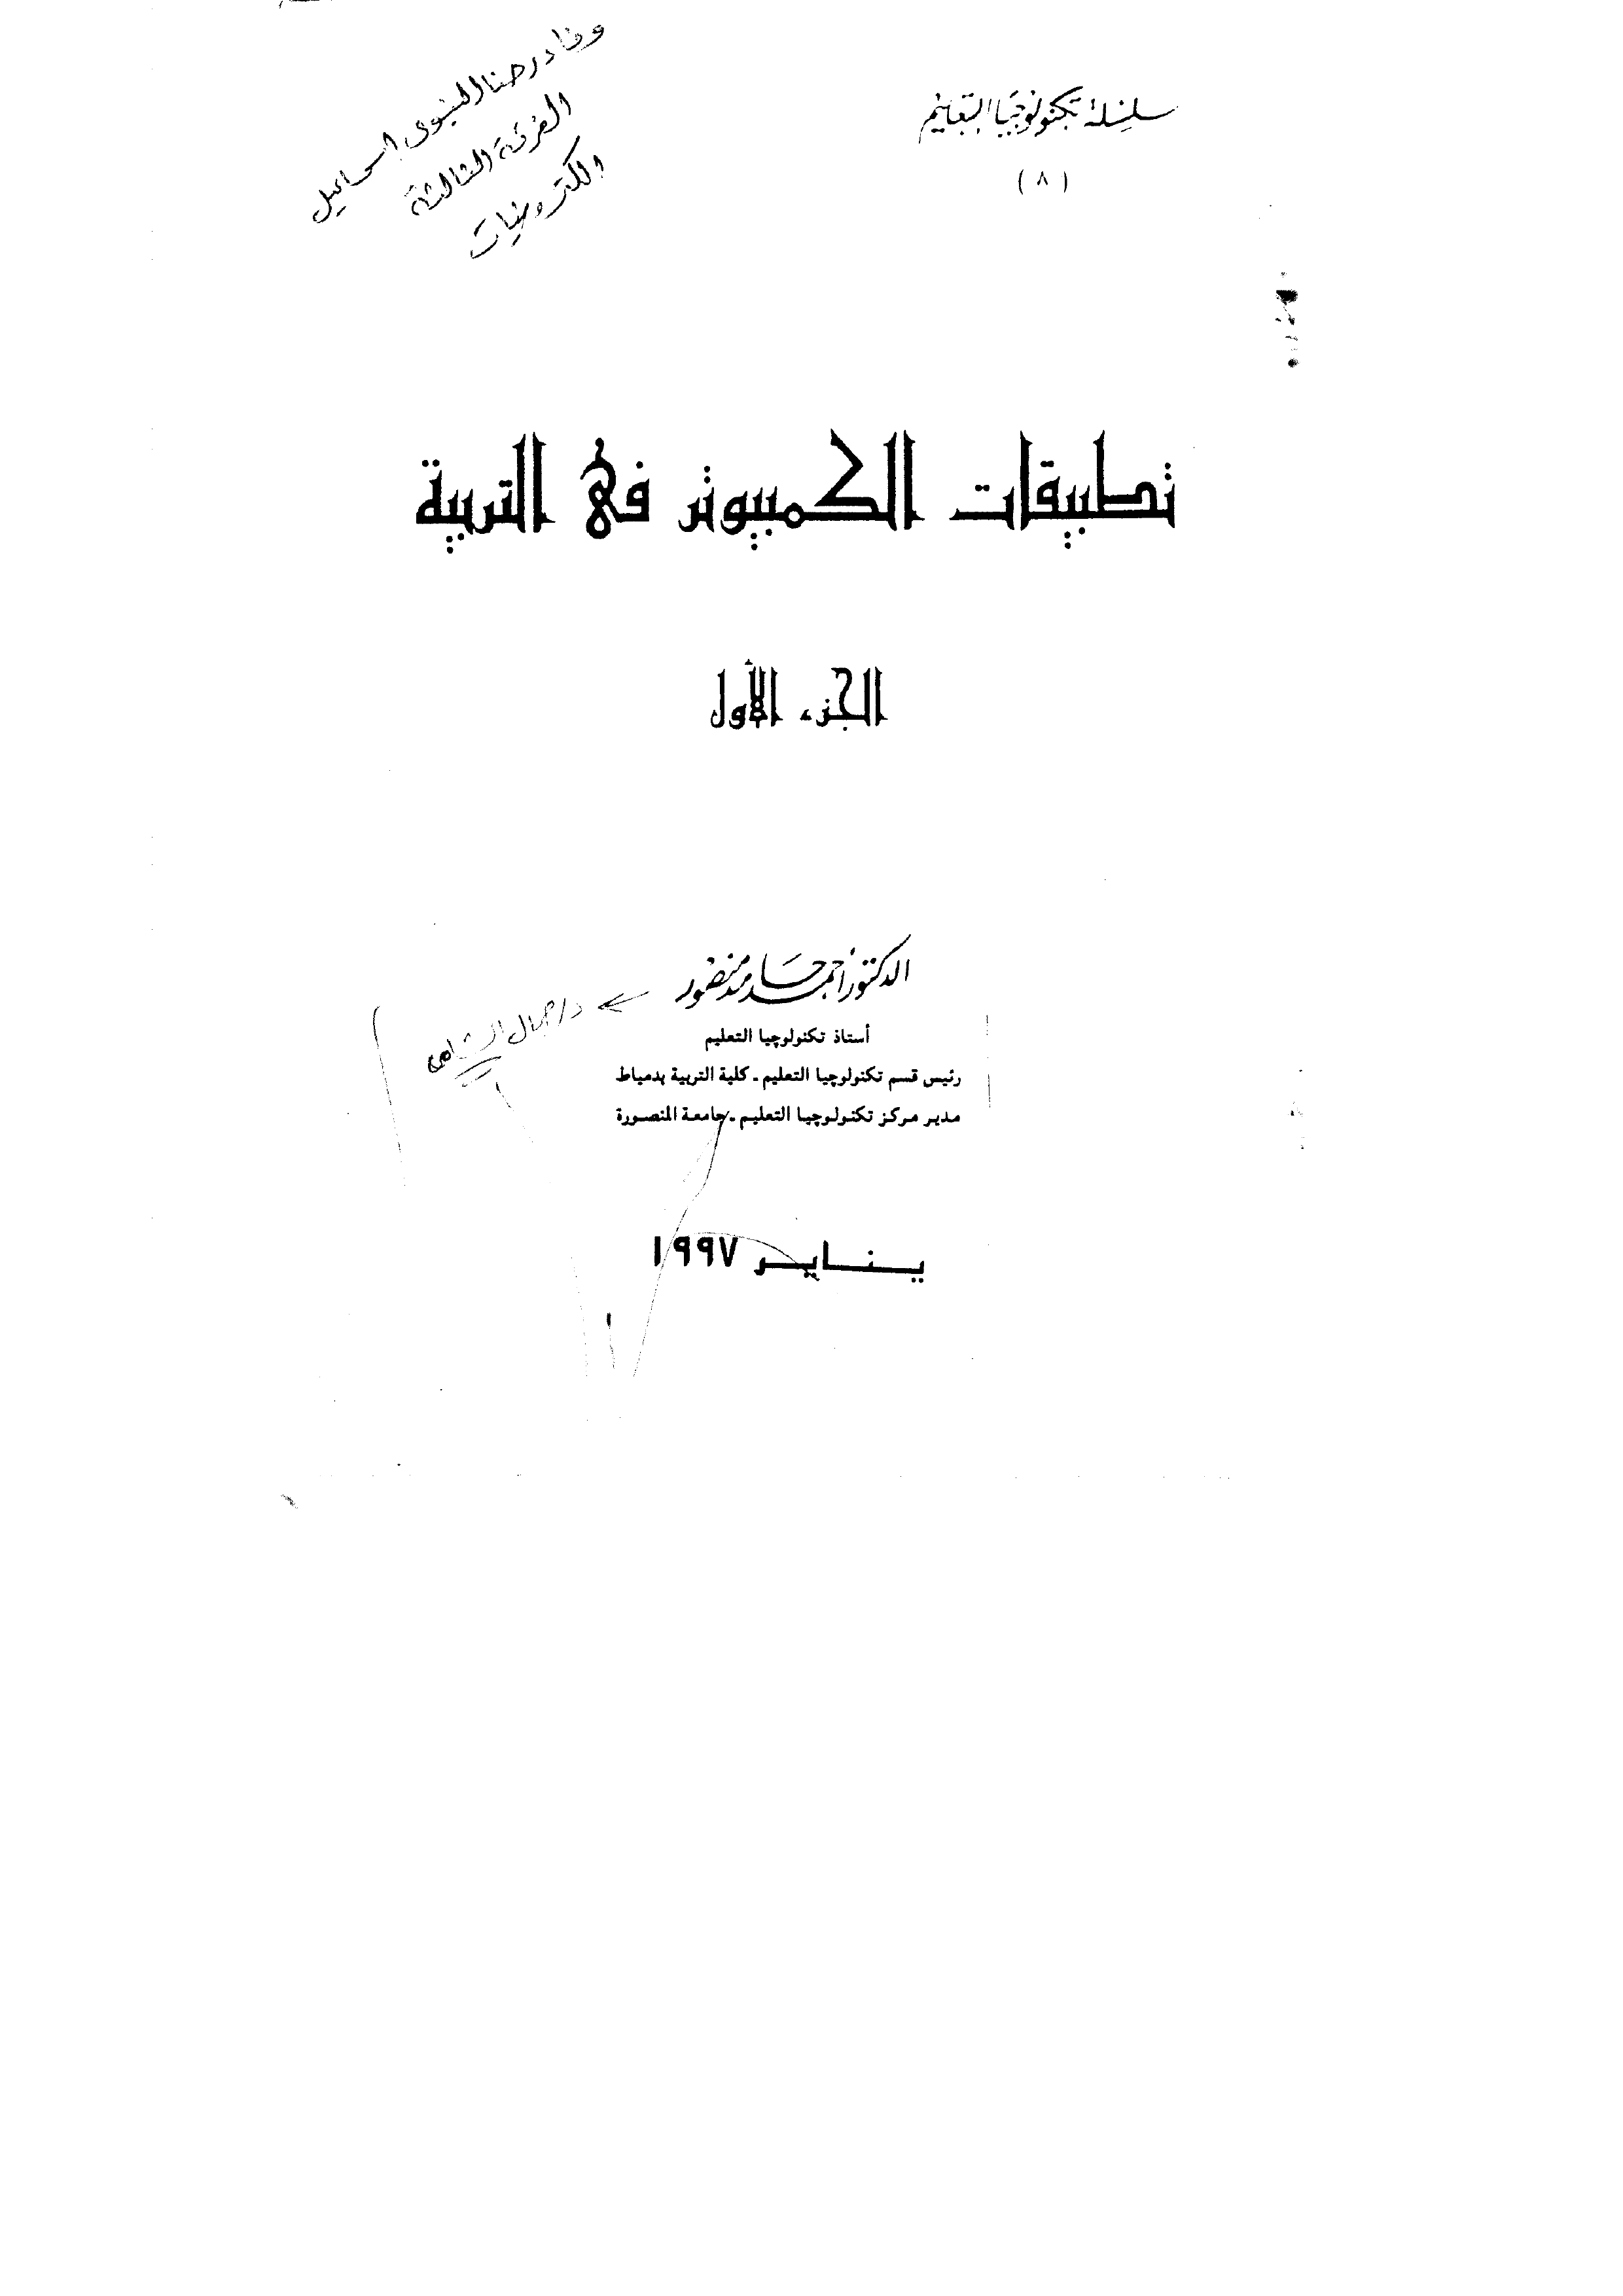 سلسلة تكنولوجيا التعليم
(٨)
الفرقة الثالثة
الكترونيات
تطبيقات الكمبيوتر فى التربية
الجزء الأول
الدكتور أحمد حامد منصور
د/جمال
أستاذ تكنولوچيا التعليم
رئيس قسم تكنولوچيا التعليم ـ كلية التربية بدمياط
مدير مركز تكنولوچيا التعليم ـ جامعة المنصورة
ينايـر ١٩٩٧